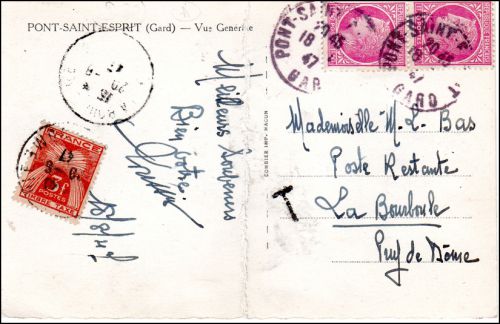 PONT-SAINT-ESPRIT (Gard) — Vue Generale
Meilleurs Souvenirs
Bien votre
18/8/47
FRANCE
5F
POSTES
TIMBRE TAXE
COMBIER IMP. MACON
PONT-SAINT
18
47
GARD
PONT-SAINT
47
GARD
T
Mademoiselle M. L. Bas
Poste Restante
La Bourboule
Puy de Dôme